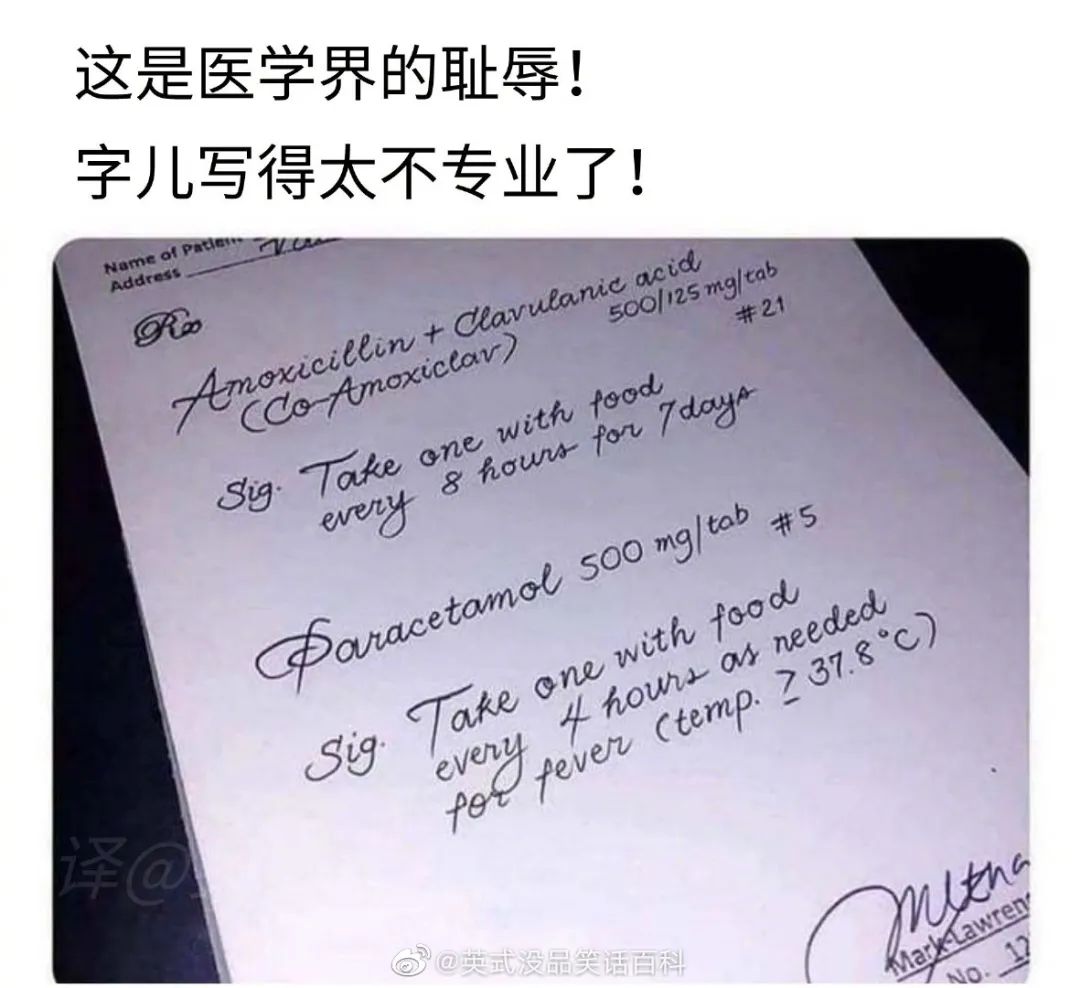 这是医学界的耻辱！
字儿写得太不专业了！
Name of Patient
Address
Rx
Amoxicillin + Clavulanic acid
500/125 mg/tab
(Co-Amoxiclav)
#21
Sig. Take one with food
every 8 hours for 7days
Paracetamol 500 mg/tab #5
Sig. Take one with food
every 4 hours as needed
for fever (temp. ≥ 37.8°C)
Mark-Lawren
No. 12
译@
@英式没品笑话百科